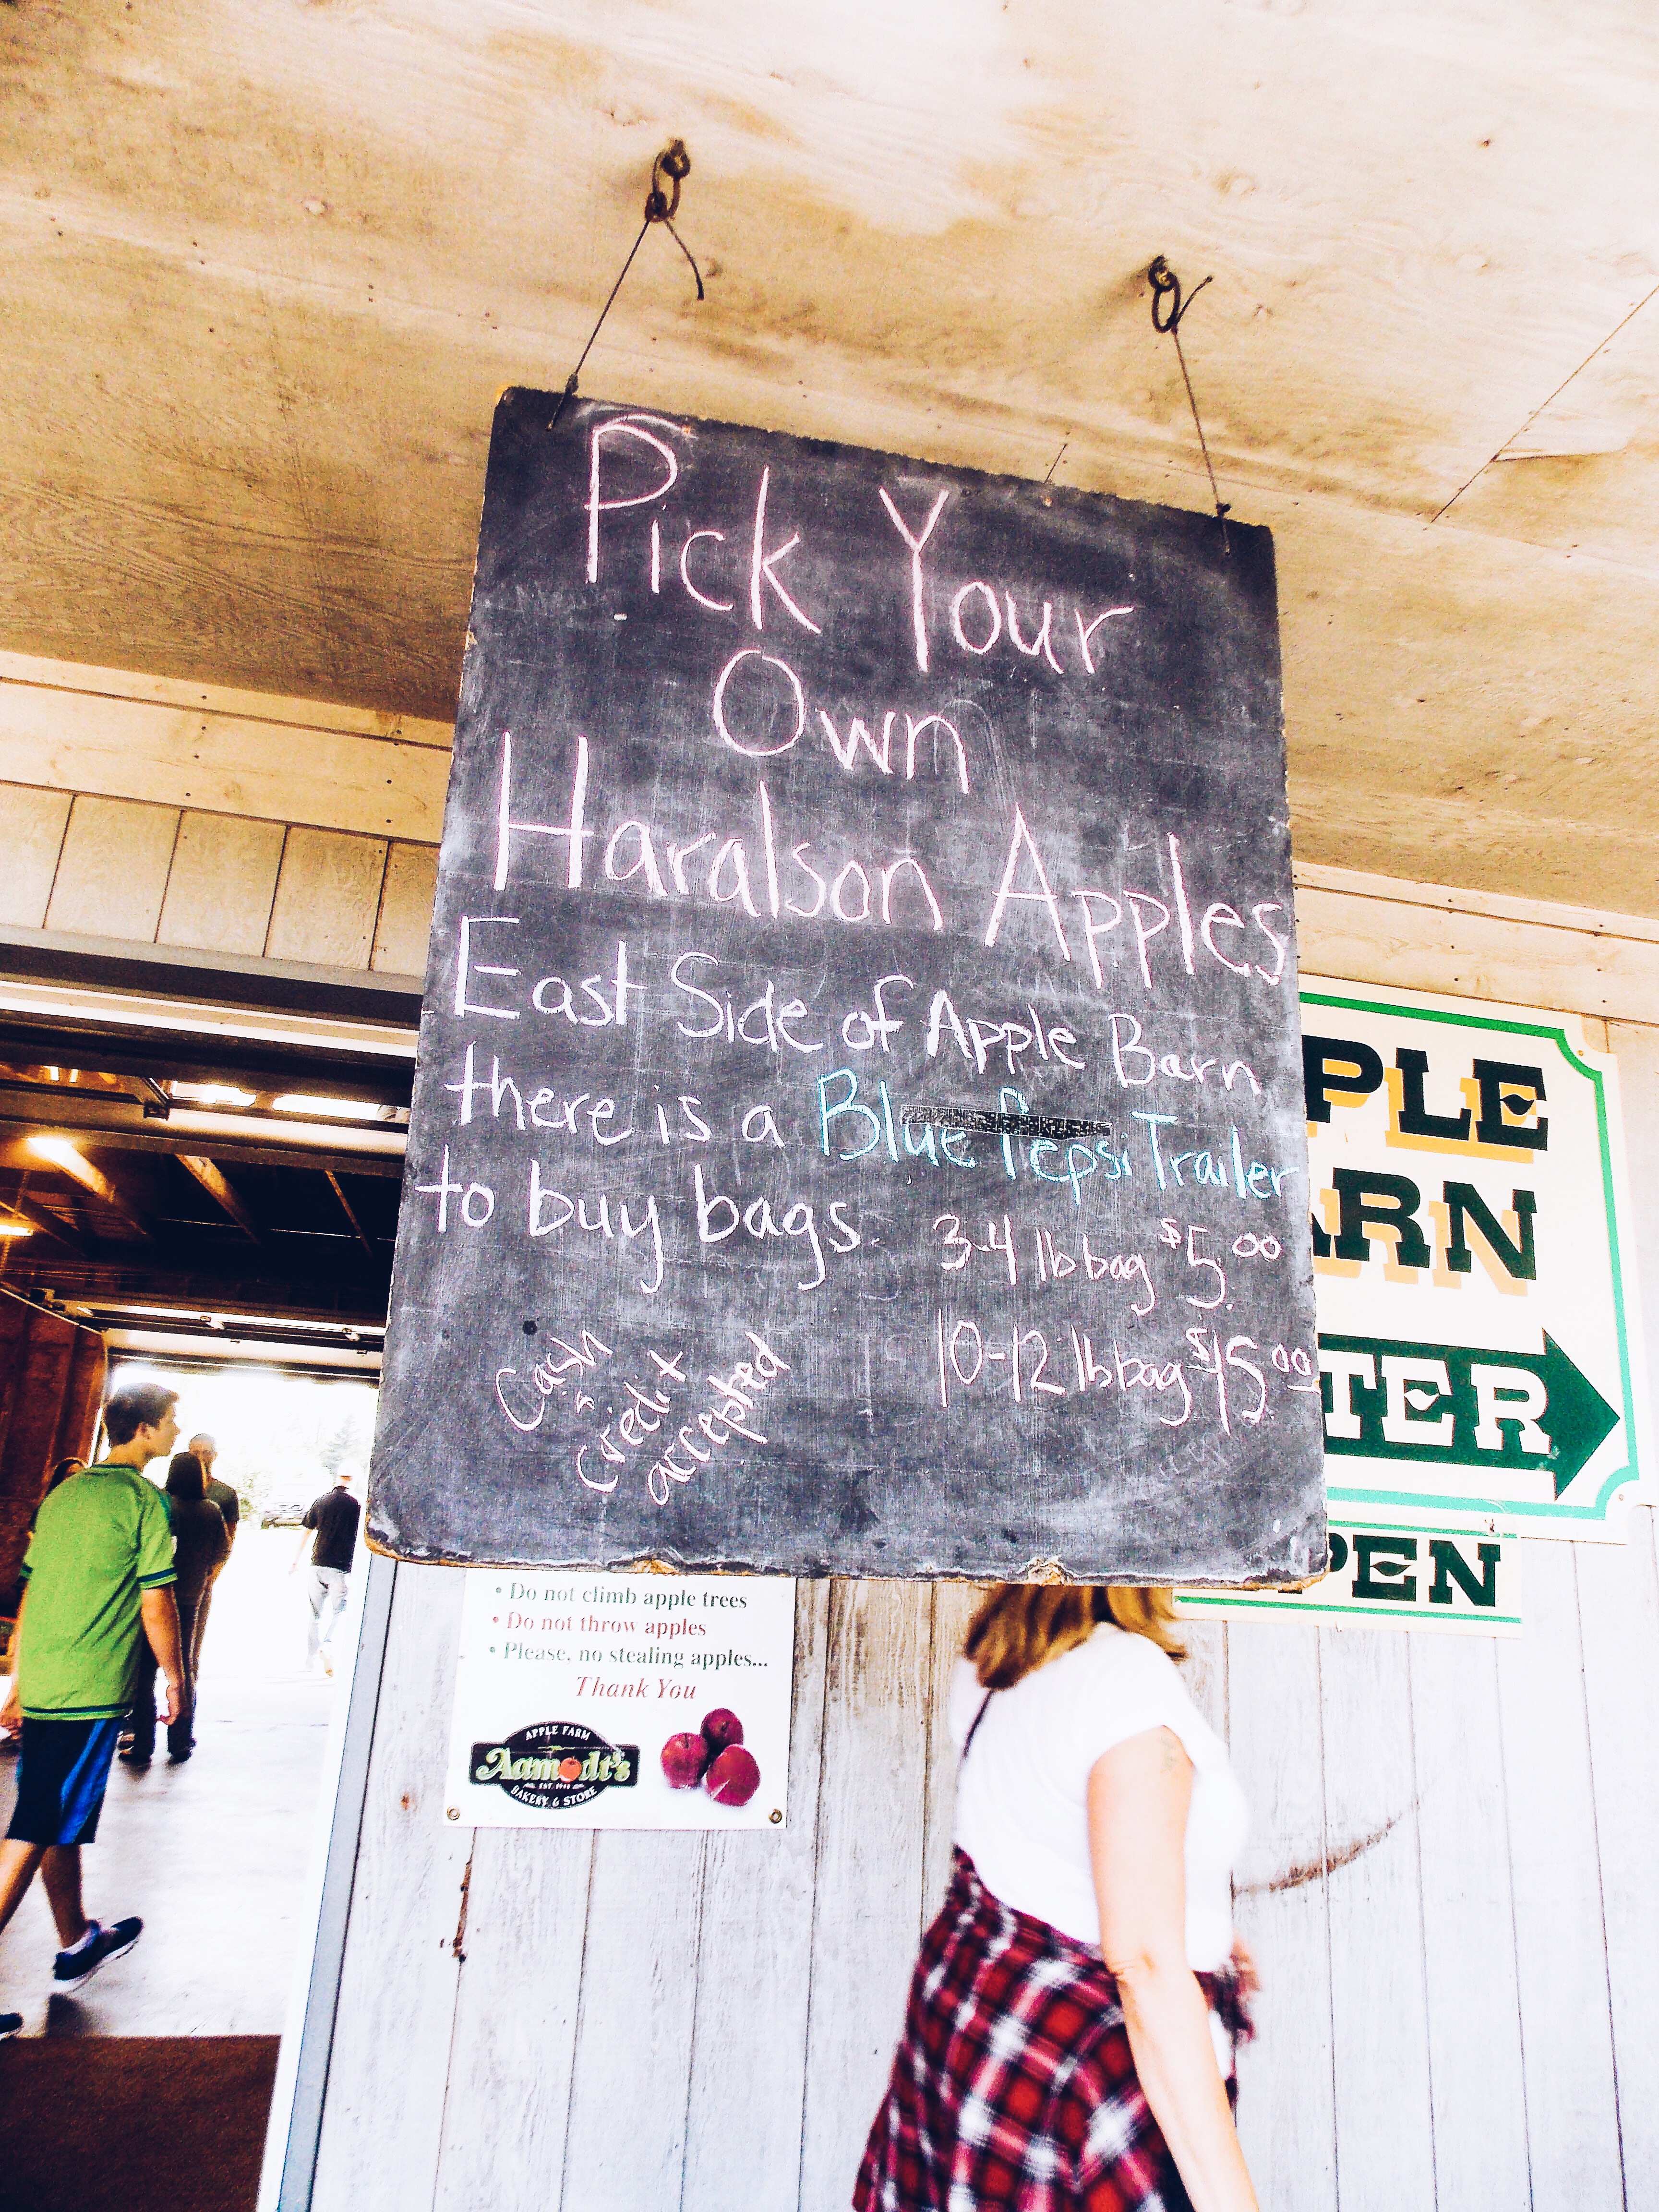 Pick Your
Own
Haralson Apples
East Side of Apple Barn
there is a Blue Pepsi Trailer
to buy bags.
3-4 lb bag $5.00
10-12 lb bag $15.00
Cash
&
credit
accepted
PLE
ARN
TER
PEN
• Do not climb apple trees
• Do not throw apples
• Please, no stealing apples...
Thank You
APPLE FARM
Aamodt's
EST. 1948
BAKERY & STORE